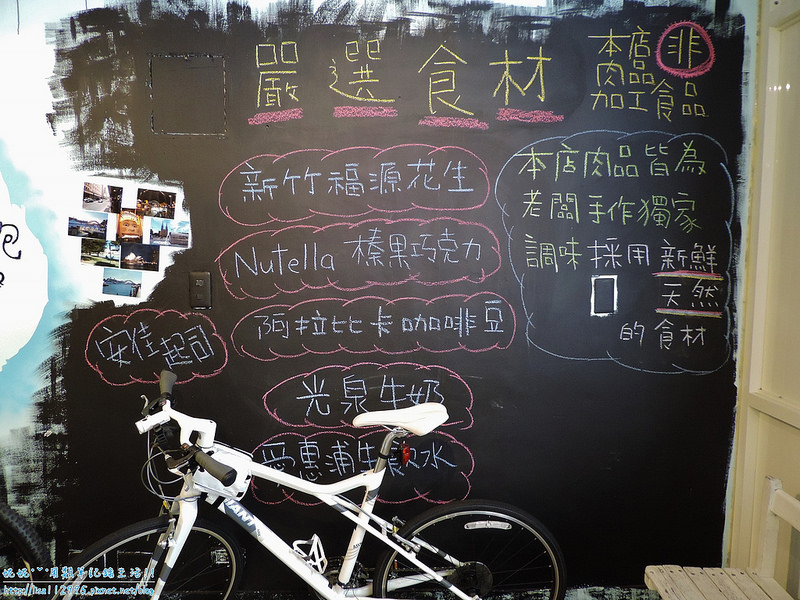 嚴選食材
本店
肉品
非
加工食品
新竹福源花生
Nutella 榛果巧克力
阿拉比卡咖啡豆
安佳起司
光泉牛奶
本店肉品皆為
老闆手作獨家
調味採用新鮮
天然
的食材
GIANT